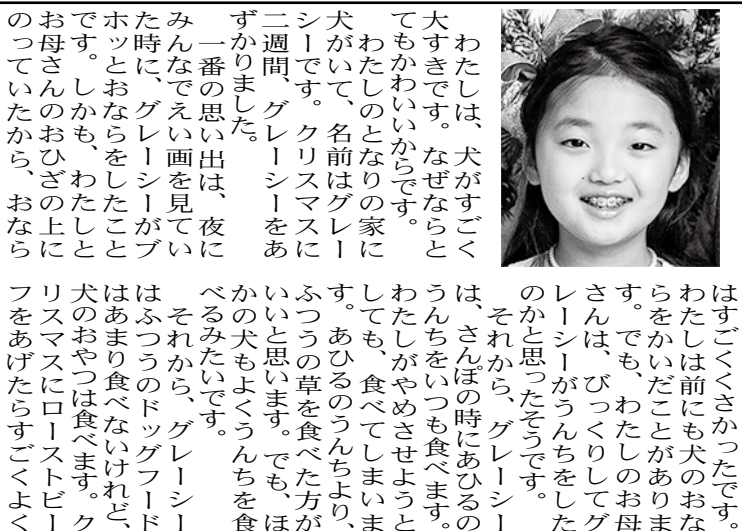 わたしは、犬がすごく
大すきです。なぜならと
てもかわいいからです。
わたしのとなりの家に
犬がいて、名前はグレー
シーです。クリスマスに
二週間、グレーシーをあ
ずかりました。
一番の思い出は、夜に
みんなでえい画を見てい
た時に、グレーシーがブ
ホッとおならをしたこと
です。しかも、わたしと
お母さんのおひざの上に
のっていたから、おなら
はすごくくさかったです。
わたしは前にも犬のおな
らをかいだことがありま
す。でも、わたしのお母
さんは、びっくりしてグ
レーシーがうんちをした
のかと思ったそうです。
それから、グレーシー
は、さんぽの時にあひるの
うんちをいつも食べます。
わたしがやめさせようと
しても、食べてしまいま
す。あひるのうんちより、
ふつうの草を食べた方が
いいと思います。でも、ほ
かの犬もよくうんちを食
べるみたいです。
それから、グレーシー
はふつうのドッグフード
はあまり食べないけれど、
犬のおやつは食べます。ク
リスマスにローストビー
フをあげたらすごくよく